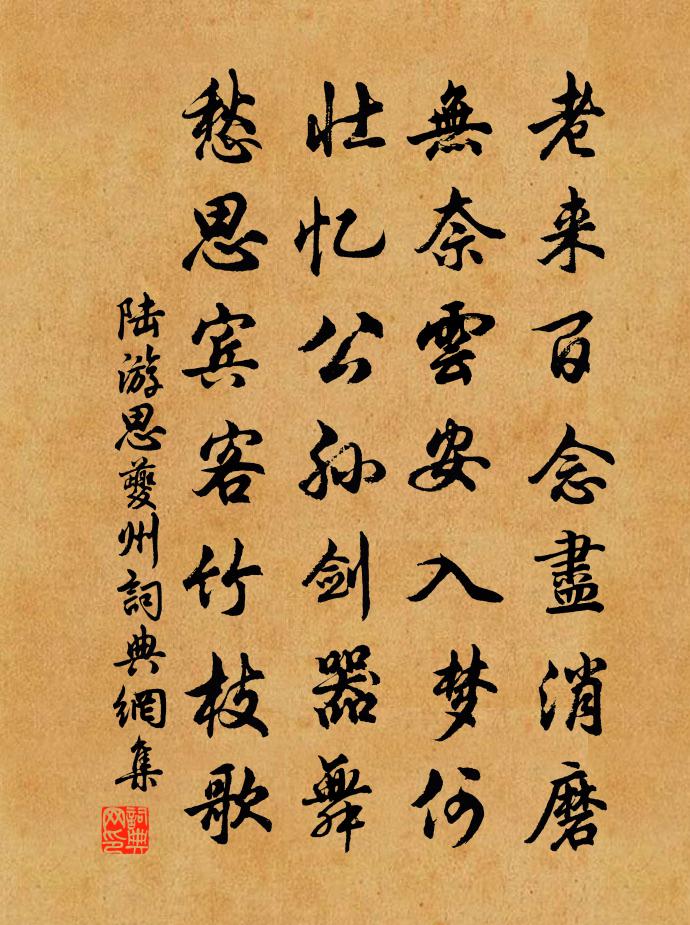 老来百念盡消磨
無奈雲安入梦何
壮忆公孙剑器舞
愁思宾客竹枝歌
陆游思夔州詞典網集
詞典网印